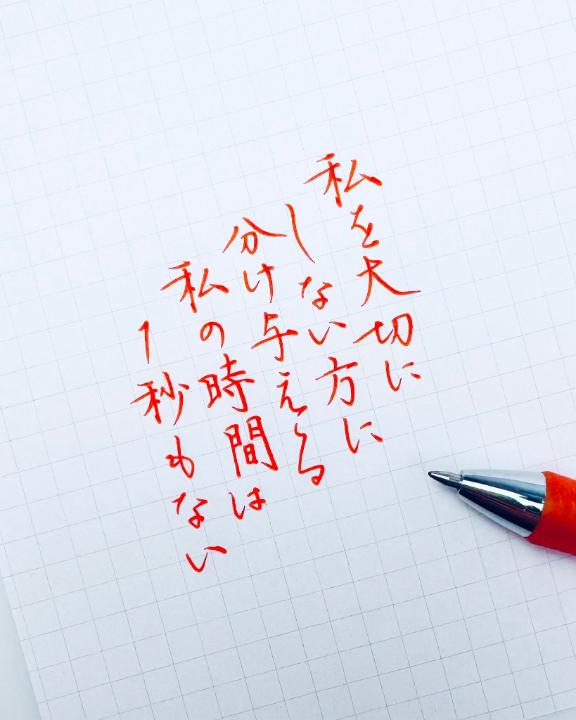 私を大切に
しない方に
分け与える
私の時間は
1秒もない